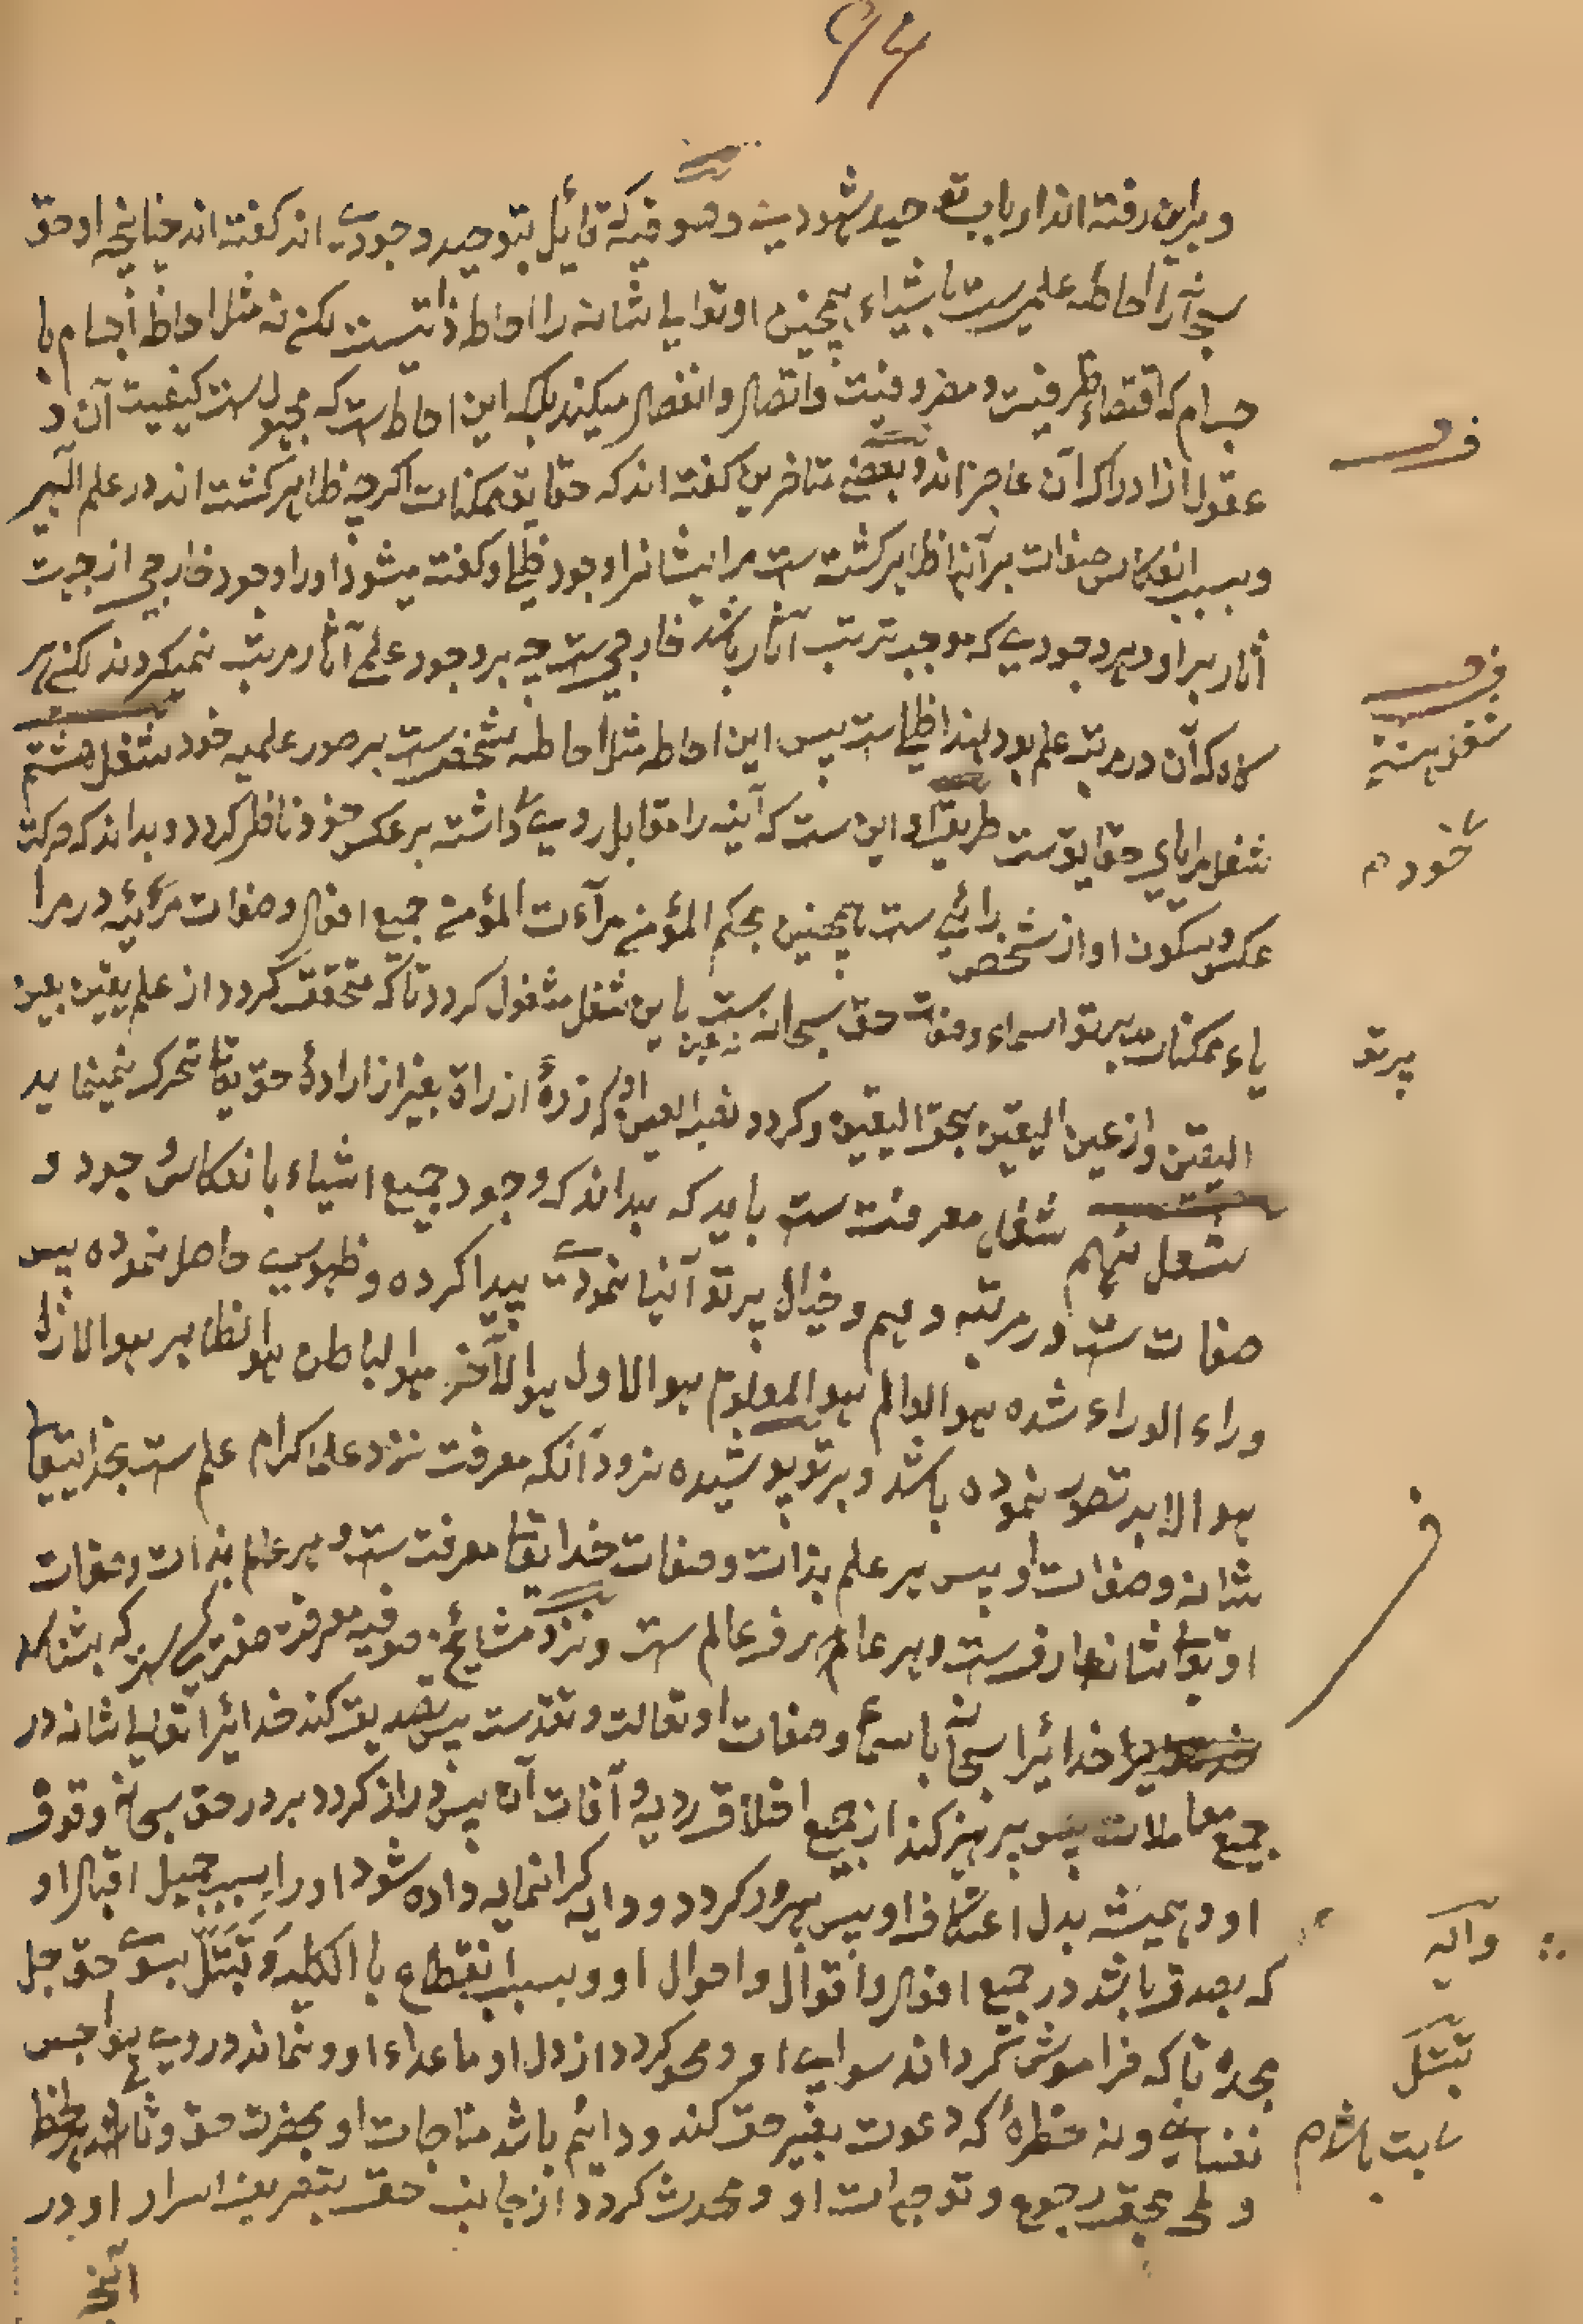 ۹۴
و براین رفته اند ارباب توحید شهودیه و صوفیه که قائل بتوحید وجودی اند گفته اند چنانچه او حق
سبحانه را احاطه علمیست باشیاء همچنین او تعالی شانه را احاطه ذاتیست لکن نه مثل احاطه اجسام با
جسام که اقتضاء ظرفیت و مظروفیت و اتصال و انفصال میکند بلکه این احاطه ایست که مجهول است کیفیت آن و
عقول از ادراک آن عاجز اند و بعضی متاخرین گفته اند که حقایق ممکنات اگرچه ظاهر گشته اند در علم الهی
و بسبب انعکاس صفات بر آنها ظاهر گشته ست مرایشانرا وجود ظلی و گفته میشود او را وجود خارجی از جهت
آثار بر او و هر وجودی که موجب ترتب آثار باشد خارجی ست چه بر وجود علمی آثار مرتب نمیگردند لکن هر
گاه که آن در مرتبه علم بود لهذا ظلی ست پس این احاطه مثل احاطه شخص ست بر صور علمیه خود شغل هشتم
شغل مرایای حقایق ست طریق او این ست که آینه را مقابل روی داشته بر عکس خود ناظر گردد و بداند که حرکت
عکس و سکون او از شخص رائی ست همچنین بحکم المؤمن مرآت المؤمن جمیع افعال و صفات مرئیه در مرا
یاء ممکنات پرتو اسماء و صفات حق سبحانه ست نه عین باین شغل مشغول گردد تا که متحقق گردد از علم یقین بعین
الیقین و از عین الیقین بحق الیقین و گردد نصب العین او که ذره از ذرات بغیر از ارادۀ حق تعالی تحرک نمینماید
شغل نهم شغل معرفت ست باید که بداند که وجود جمیع اشیاء بانعکاس وجود و
صفات ست در مرتبه وهم و خیال پرتو آنها نمودی پیدا کرده و ظهوری حاصل نموده پس
وراء الوراء شده هو العالم هو المعلوم هو الاول هو الآخر هو الباطن هو الظاهر هو الازل
هو الابد تصور نموده باشد و بر تو پوشیده نرود آنکه معرفت نزد علماء کرام علم ست بخدایتعالی
شانه و صفات او پس هر علم بذات و صفات خدا تعالی معرفت ست و هر عالم بذات و صفات
او تعالی شانه عارف ست و هر عارف عالم ست و نزد مشایخ صوفیه معرفت صفتی ست که بشناسد
خدائیرا سبحانه باسماء و صفات او تعالت و تقدست پس تصدیق کند خدائیرا تعالی شانه در
جمیع معاملات پس پرهیز کند از جمیع اخلاق ردیه و آفات آن پس دراز گردد بر در حق سبحانه وقوف
او و همیشه بدل اعتکاف او پس بهرور گردد و دایه گرانمایه داده شود او را بسبب جمیل اقبال او
که بصدق باشد در جمیع افعال و اقوال و احوال او و بسبب انقطاع بالکلیه و تبتل بسوی حق جل
مجده تا که فراموش گرداند سوای او و محو گردد از دل او ماعداء او و نماند در وی هواجس
نفسانی و نه خطرۀ که دعوت بغیر حق کند و دایم باشد مناجات او بحضرت حق و ثابت باشد هر لحظه
و لمحه بحق رجوع و توجهات او و محدث گردد از جانب حق بتعریف اسرار او در
آنچه
شغل هشتم
خود م
پرتو
وآیه
تبتل
ثابت باشد م